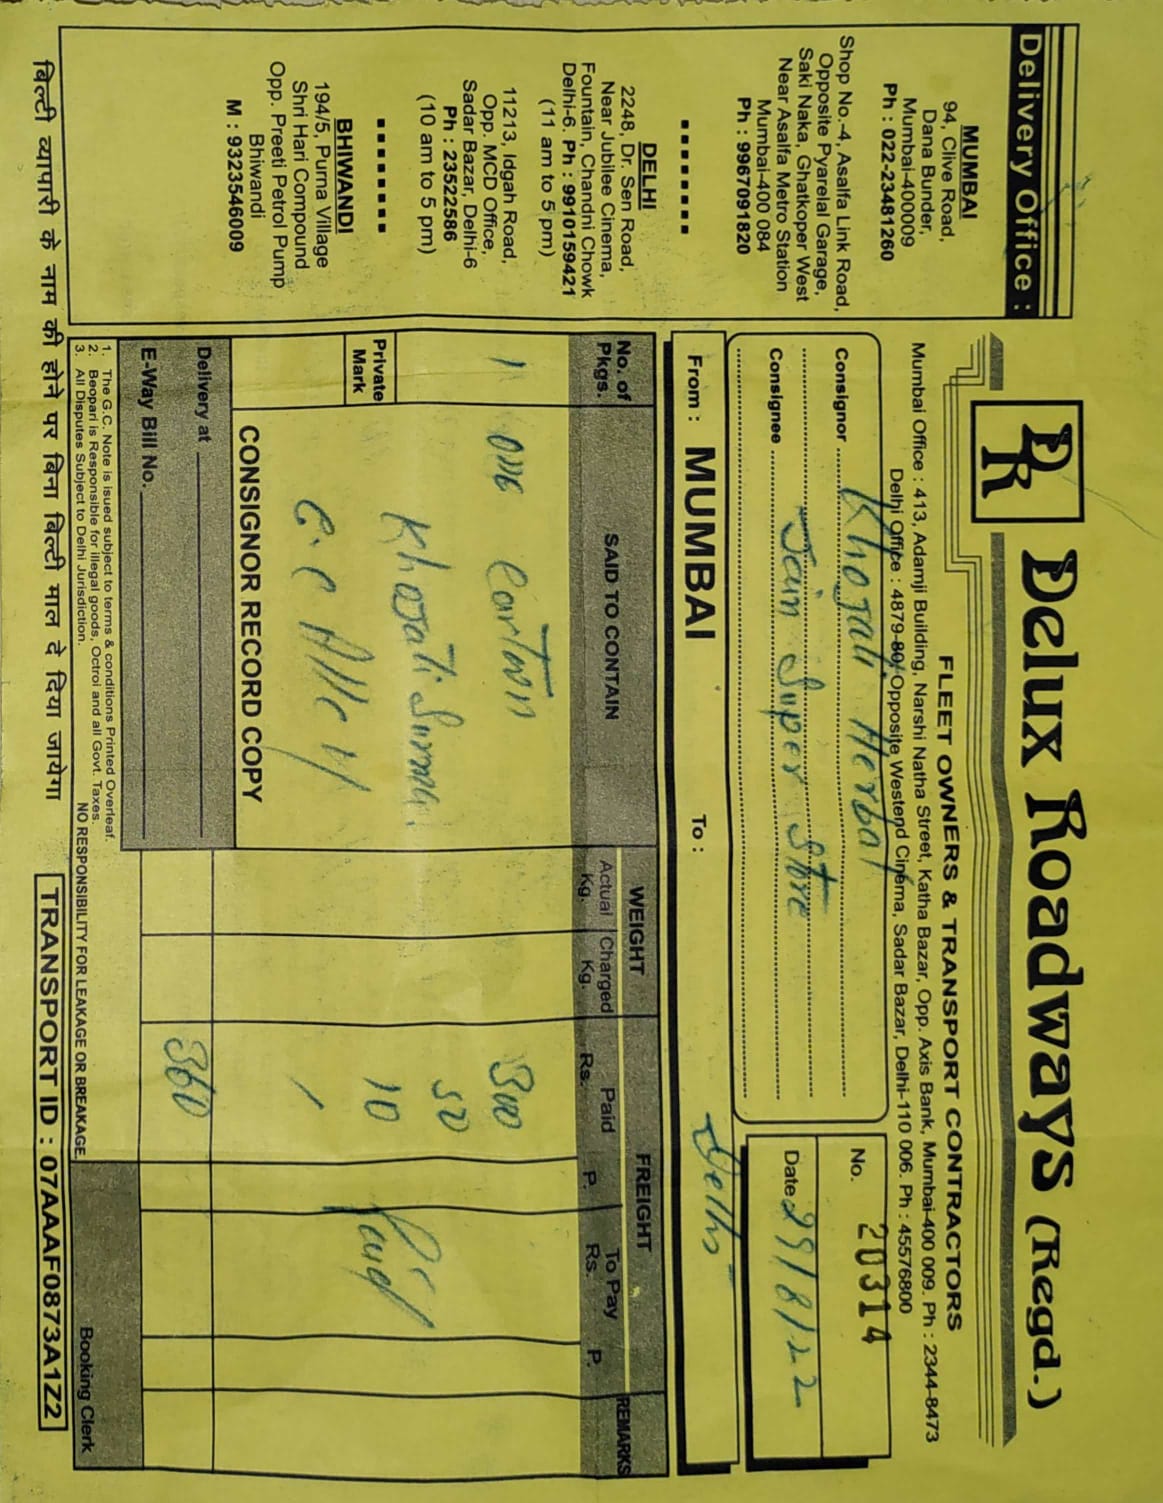 Delivery Office :
MUMBAI
94, Clive Road,
Dana Bunder,
Mumbai-400009
Ph : 022-23481260
Shop No.-4, Asalfa Link Road,
Opposite Pyarelal Garage,
Saki Naka, Ghatkoper West
Near Asalfa Metro Station
Mumbai-400 084
Ph : 9967091820
DELHI
2248, Dr. Sen Road,
Near Jubilee Cinema,
Fountain, Chandni Chowk
Delhi-6. Ph : 9910159421
(11 am to 5 pm)
11213, Idgah Road,
Opp. MCD Office,
Sadar Bazar, Delhi-6
Ph : 23522586
(10 am to 5 pm)
BHIWANDI
194/5, Purna Village
Shri Hari Compound
Opp. Preeti Petrol Pump
Bhiwandi
M : 9323546009
DR Delux Roadways (Regd.)
FLEET OWNERS & TRANSPORT CONTRACTORS
Mumbai Office : 413, Adamji Building, Narshi Natha Street, Katha Bazar, Opp. Axis Bank, Mumbai-400 009. Ph : 2344-8473
Delhi Office : 4879-80, Opposite Westend Cinema, Sadar Bazar, Delhi-110 006. Ph : 45576800
Consignor Khojati Herbal
Consignee Jain Super Store
No. 20314
Date 29/8/22
From : MUMBAI To : Delhi
No. of Pkgs. SAID TO CONTAIN WEIGHT FREIGHT REMARKS
Actual Kg. Charged Kg. Paid Rs. P. To Pay Rs. P.
1 one Cartoon 300
50
Khojati Surma 10
Private Mark
Paid
CONSIGNOR RECORD COPY
Delivery at
360
E-Way Bill No.
1. The G.C. Note is isued subject to terms & conditions Printed Overleaf.
2. Beopari is Responsible for illegal goods, Octroi and all Govt. Taxes.
3. All Disputes Subject to Delhi Jurisdiction.
NO RESPONSIBILITY FOR LEAKAGE OR BREAKAGE
Booking Clerk
बिल्टी व्यापारी के नाम की होने पर बिना बिल्टी माल दे दिया जायेगा
TRANSPORT ID : 07AAAF0873A1Z2